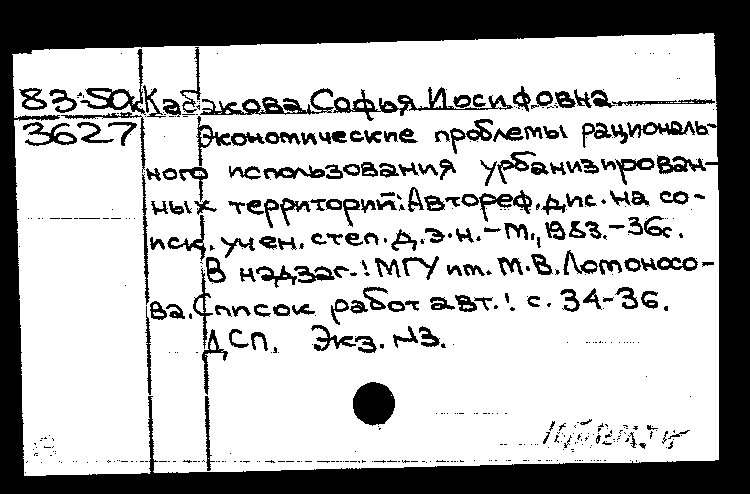 83-50к Кабакова, Софья Иосифовна
3627 Экономические проблемы рациональ-
ного использования урбанизирован-
ных территорий: Автореф. дис. на со-
иск. учен. степ. д.э.н. - М., 1983. - 36с.
В надзаг.: МГУ им. М.В. Ломоносо-
ва. Список работ авт.: с. 34-36.
ДСП. Экз. №3.